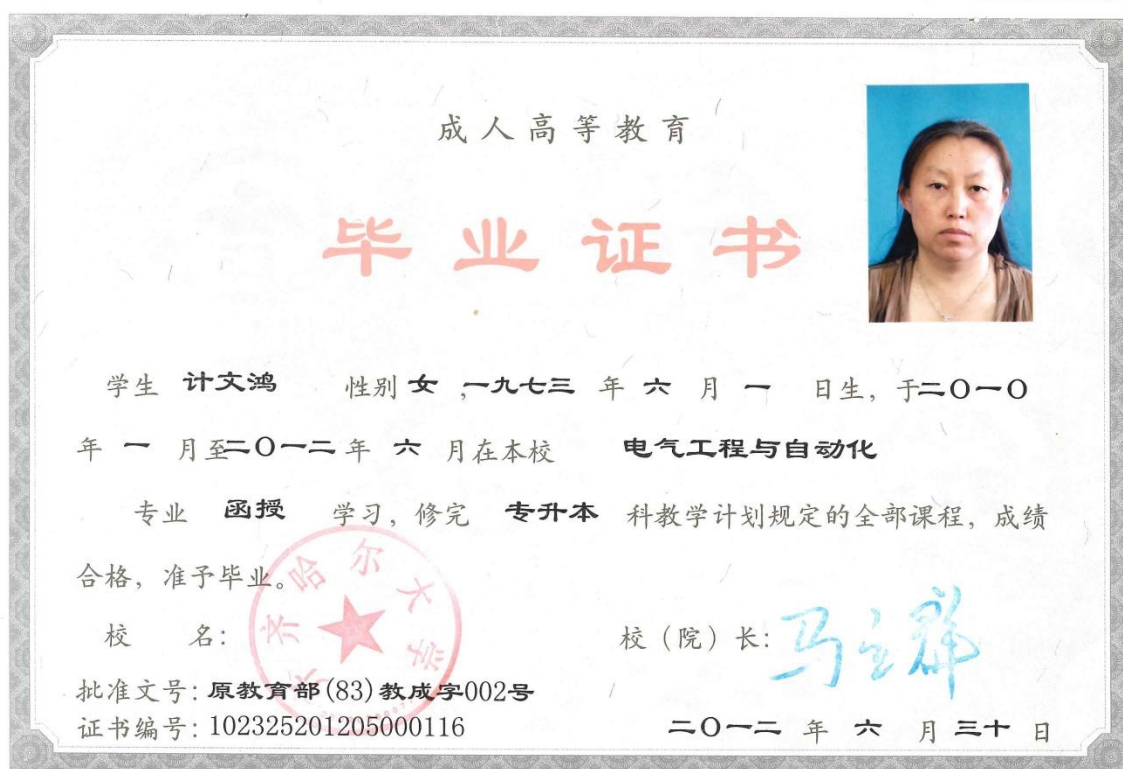 成人高等教育
毕业证书
学生 计文鸿 性别 女 ,一九七三 年 六 月 一 日生, 于二〇一〇
年 一 月至二〇一二年 六 月在本校 电气工程与自动化
专业 函授 学习, 修完 专升本 科教学计划规定的全部课程, 成绩
合格, 准予毕业。
齐齐哈尔大学
校 名: 校（院）长: 马立群
批准文号: 原教育部(83)教成字002号
证书编号: 102325201205000116 二〇一二 年 六 月 三十 日